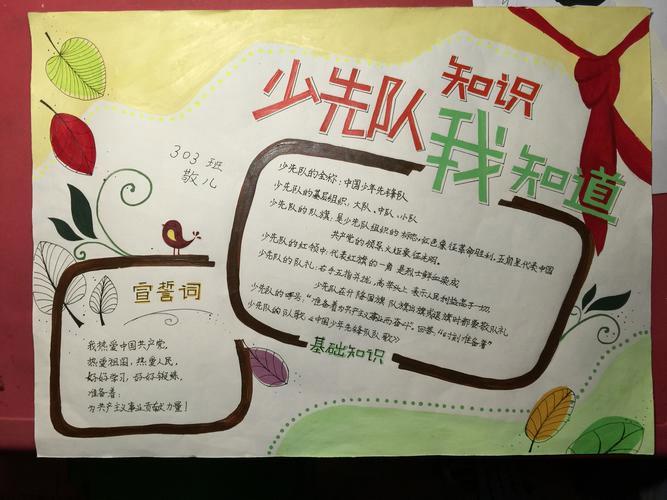 少先队知识
我知道
303班
敬儿
少先队的全称：中国少年先锋队
少先队的基层组织：大队、中队、小队
少先队的队旗：是少先队组织的标志，红色象征革命胜利，五角星代表中国
共产党的领导，火炬象征光明。
少先队的红领巾：代表红旗的一角，是烈士鲜血染成
少先队的队礼：右手五指并拢，高举头上，表示人民利益高于一切，
少先队在升降国旗、队旗出旗或退旗时都要敬队礼
少先队的呼号："准备着为共产主义事业而奋斗"，回答："时刻准备着"
少先队的队歌《中国少年先锋队队歌》
基础知识
宣誓词
我热爱中国共产党，
热爱祖国，热爱人民，
好好学习，好好锻炼，
准备着：
为共产主义事业贡献力量！